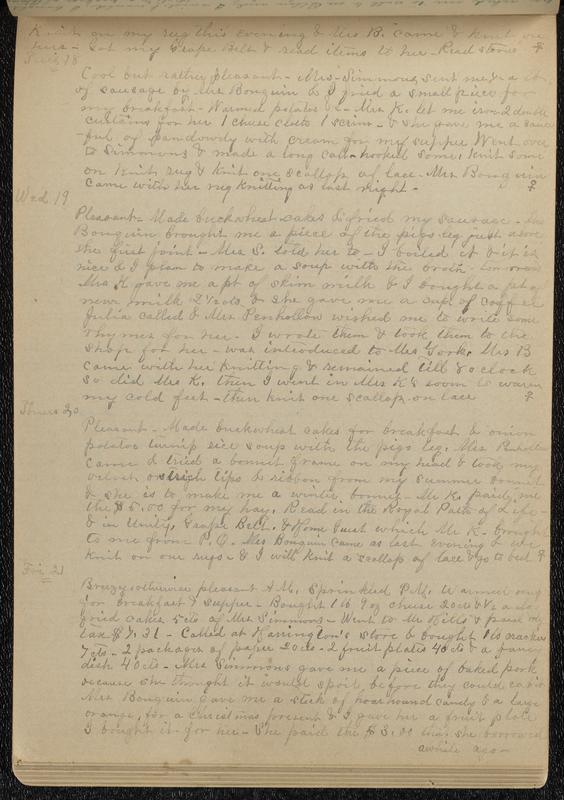 Knit on my rug this evening & Mrs B. came & knit on
hers - Got my Grape Belt & read items to her - Read stories
18
Cool but rather pleasant - Mrs Simmons sent me
of sausage by Mrs Bonguin & I fried a small piece for
my breakfast - Warmed potatoes &c - Mrs K. let me iron 2 double
curtains for her 1 cheese cloth 1 scrim - & she gave me a sauce
-ful of pandowdy with cream for my supper Went over
to Simmons & made a long call - hooked some, knit some
on knit rug & knit one scallop of lace - Mrs Bonguin
came with her rug knitting as last night -
Wed 19
Pleasant - Made buckwheat cakes & fried my sausage - Mrs
Bonguin brought me a piece of the pigs leg just above
the first joint - Mrs S. told her to - I boiled it & it is
nice & I plan to make a soup with the broth tomorrow
Mrs K gave me a pt of skim milk & I bought a pt of
new milk 2½ cts & she gave me a cup of coffee
Julia called & Mrs Penhollow wished me to write some
rhymes for her - I wrote them & took them to the
shop for her - was introduced to Mrs York. Mrs B
came with her knitting & remained till 8 o clock
so did Mrs K. then I went in Mrs K's room to warm
my cold feet - then knit one scallop on lace
Thurs 20
Pleasant - Made buckwheat cakes for breakfast & onion
potatoe turnip rice soup with the pigs leg. Mrs Penhollow
came & tried a bonnet frame on my head & took my
velvet ostrich tips & ribbon from my summer bonnet
& she is to make me a winter bonnet - Mr K. paid me
the $5.00 for my hay. Read in the Royal Path of Life -
& in Unity, Grape Belt, & Home Guest which Mr K - brought
to me from P.O. Mrs Bonguin came as last evening & we
knit on our rugs - & I will knit a scallop of lace & go to bed
Fri 21
Breezy, otherwise pleasant A.M. Sprinkled P.M. Warmed
for breakfast & supper - Bought 1 lb 9 oz cheese 20 cts & ½ a doz
fried cakes 5 cts of Mrs Simmons - Went to Mr Hills & paid my
tax $7.31 - Called at Harington's store & bought 1 lb crackers
7 cts - 2 packages of paper 20 cts - 2 fruit plates 40 cts & a fancy
dish 40 cts - Mrs Simmons gave me a piece of baked pork
because she thought it would spoil before they could eat it
Mrs Bonguin gave me a stick of hoarhound candy & a large
orange, for a Christmas present & I gave her a fruit plate
I bought it for her - She paid the $3.00 that she borrowed
awhile ago -